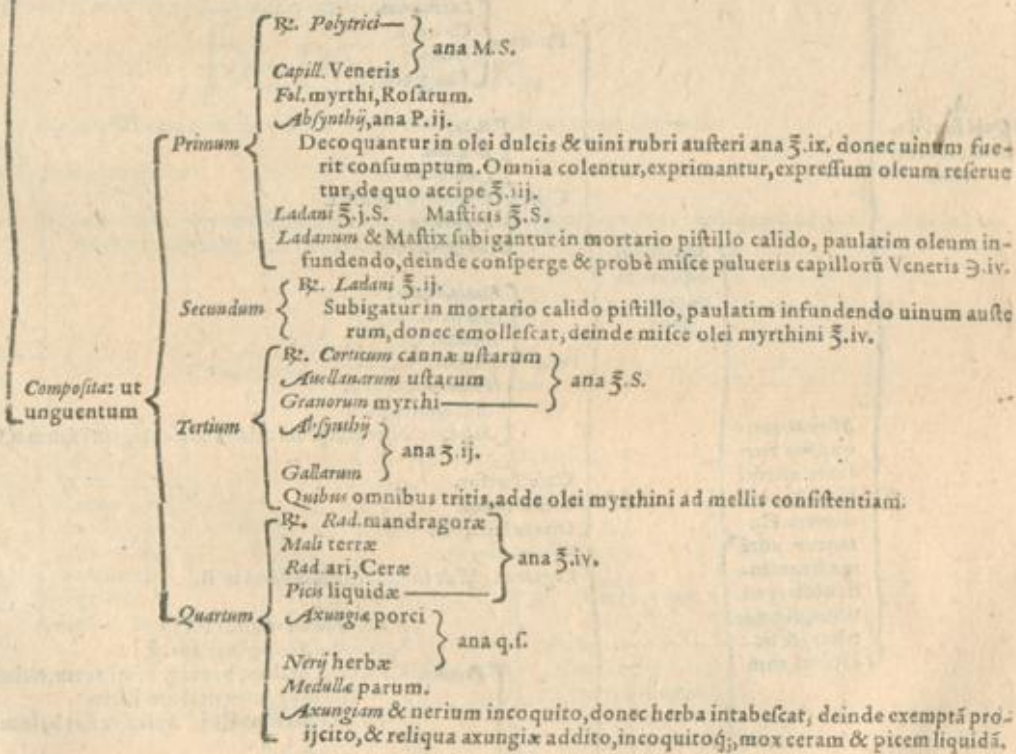 ℞. Polytrici—
ana M.S.
Capill. Veneris
Fol. myrthi, Roſarum.
Abſynthij, ana P.ij.
Primum
Decoquantur in olei dulcis & uini rubri auſteri ana ℥.ix. donec uinum fue-
rit conſumptum. Omnia colentur, exprimantur, expreſſum oleum reſerue
tur, de quo accipe ℥.iij.
Ladani ℥.j.S. Maſticis ℥.S.
Ladanum & Maſtix ſubigantur in mortario piſtillo calido, paulatim oleum in-
fundendo, deinde conſperge & probè miſce pulueris capillorũ Veneris ℈.iv.
Secundum
℞. Ladani ℥.ij.
Subigatur in mortario calido piſtillo, paulatim infundendo uinum auſte
rum, donec emolleſcat, deinde miſce olei myrthini ℥.iv.
Compoſita: ut
unguentum
Tertium
℞. Corticum cannæ uſtarum
Auellanarum uſtarum
ana ℥.S.
Granorum myrthi—
Abſynthij
ana ʒ.ij.
Gallarum
Quibus omnibus tritis, adde olei myrthini ad mellis conſiſtentiam.
Quartum
℞. Rad. mandragoræ
Mali terræ
Rad. ari, Ceræ
ana ℥.iv.
Picis liquidæ—
Axungiæ porci
ana q.ſ.
Nerij herbæ
Medullæ parum.
Axungiam & nerium incoquito, donec herba intabeſcat, deinde exemptā pro-
ijcito, & reliqua axungiæ addito, incoquitoq́;, mox ceram & picem liquidā.